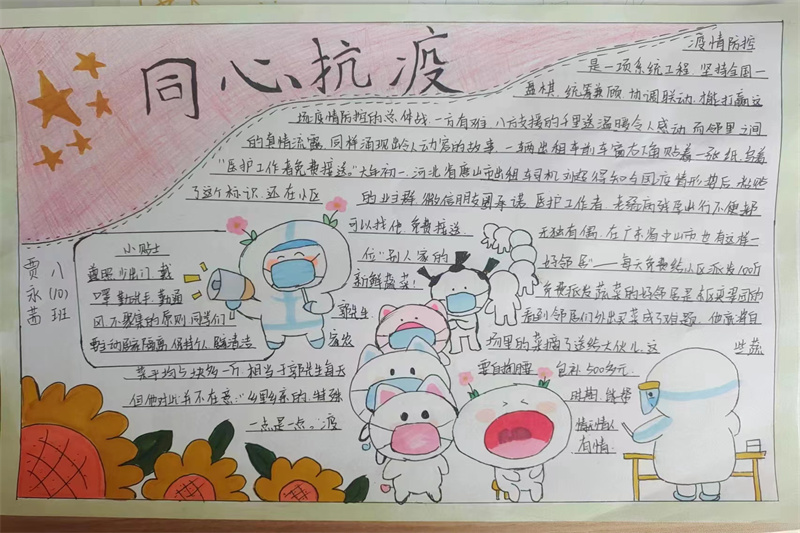 同心抗疫
疫情防控
是一项系统工程，坚持全国一
盘棋，统筹兼顾，协调联动，才能打赢这
场疫情防控的总体战。一方有难，八方支援的千里送温暖令人感动，而邻里之间
的真情流露，同样涌现出令人动容的故事。一辆出租车前车窗右角贴着一张纸，写着
"医护工作者免费接送。"大年初一，河北省唐山市出租车司机刘 得知全国疫情形势后，
了这个标识，还在小区
的业主群、微信朋友圈承诺，医护工作者、老弱病残 出行不便都
可以找他免费接送
无独有偶，在广东省中山市也有这样一
位"别人家的
好邻居"——每天免费给小区派发100斤
新鲜蔬菜！
免费派发蔬菜的好邻居是本区 的
郭先生
看到邻居们外出买菜成了难题，他 将自
家农
场里的菜摘了送给大伙儿，这
些蔬
菜平均 块多一斤，相当于郭先生每天
要自掏腰
包补500多元。
但他对此并不在意："乡里乡亲的，能帮
一点是一点。"疫
情无情人
有情。
小贴士
尽量少出门，戴
口罩，勤洗手，勤通
风，不聚集的原则，同学们
要主动居家隔离，保持个人 清洁
八(10)班
贾永茜